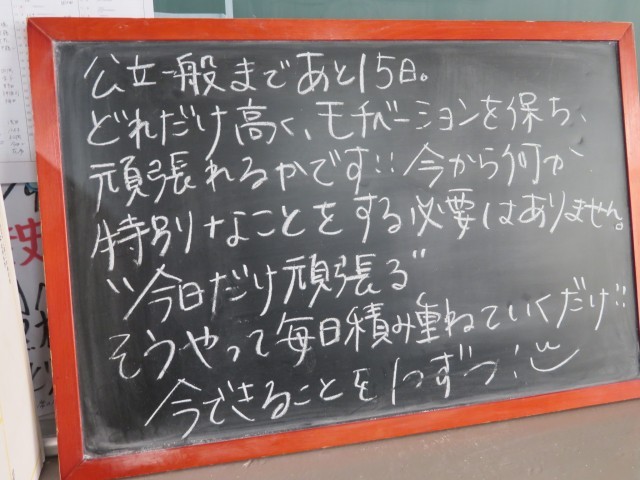 公立一般まであと15日。
どれだけ高く、モチベーションを保ち、
頑張れるかです!! 今から何か
特別なことをする必要はありません。
"今日だけ頑張る"
そうやって毎日積み重ねていくだけ!!
今できることを1つずつ!
史